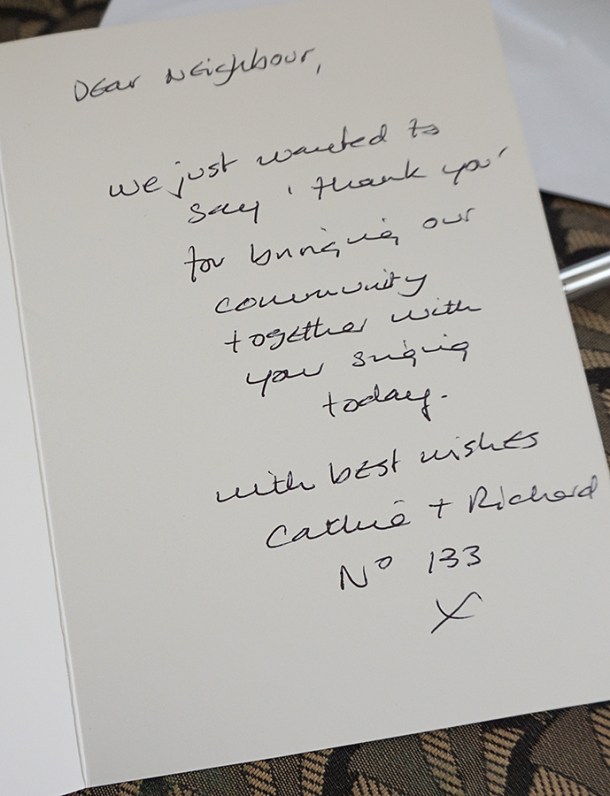 Dear Neighbour,
We just wanted to
say 'thank you'
for bringing our
community
together with
your singing
today.
with best wishes
Cathie + Richard
Nº 133
X